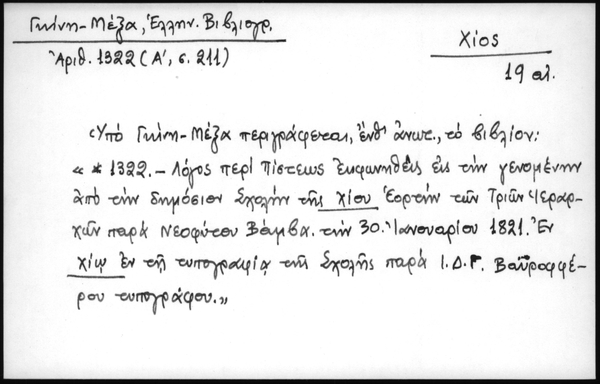 Γκίνη-Μέξα, Ἑλλην. Βιβλιογρ.
Ἀριθ. 1322 (Α', σ. 211)
Χίος
19 αἰ.
Ὑπό Γκίνη-Μέξα περιγράφεται, ἔνθ' ἀνωτ., τό βιβλίον:
« * 1322. – Λόγος περί Πίστεως ἐκφωνηθείς εἰς τήν γενομένην
ἀπό τήν δημόσιον Σχολήν τῆς Χίου Ἑορτήν τῶν Τριῶν Ἱεραρ-
χῶν παρά Νεοφύτου Βάμβα. τήν 30. Ἰανουαρίου 1821. Ἐν
Χίῳ ἐν τῇ τυπογραφίᾳ τῆς Σχολῆς παρά Ι.Δ.Γ. Βαϋροφφέ-
ρου τυπογράφου.»